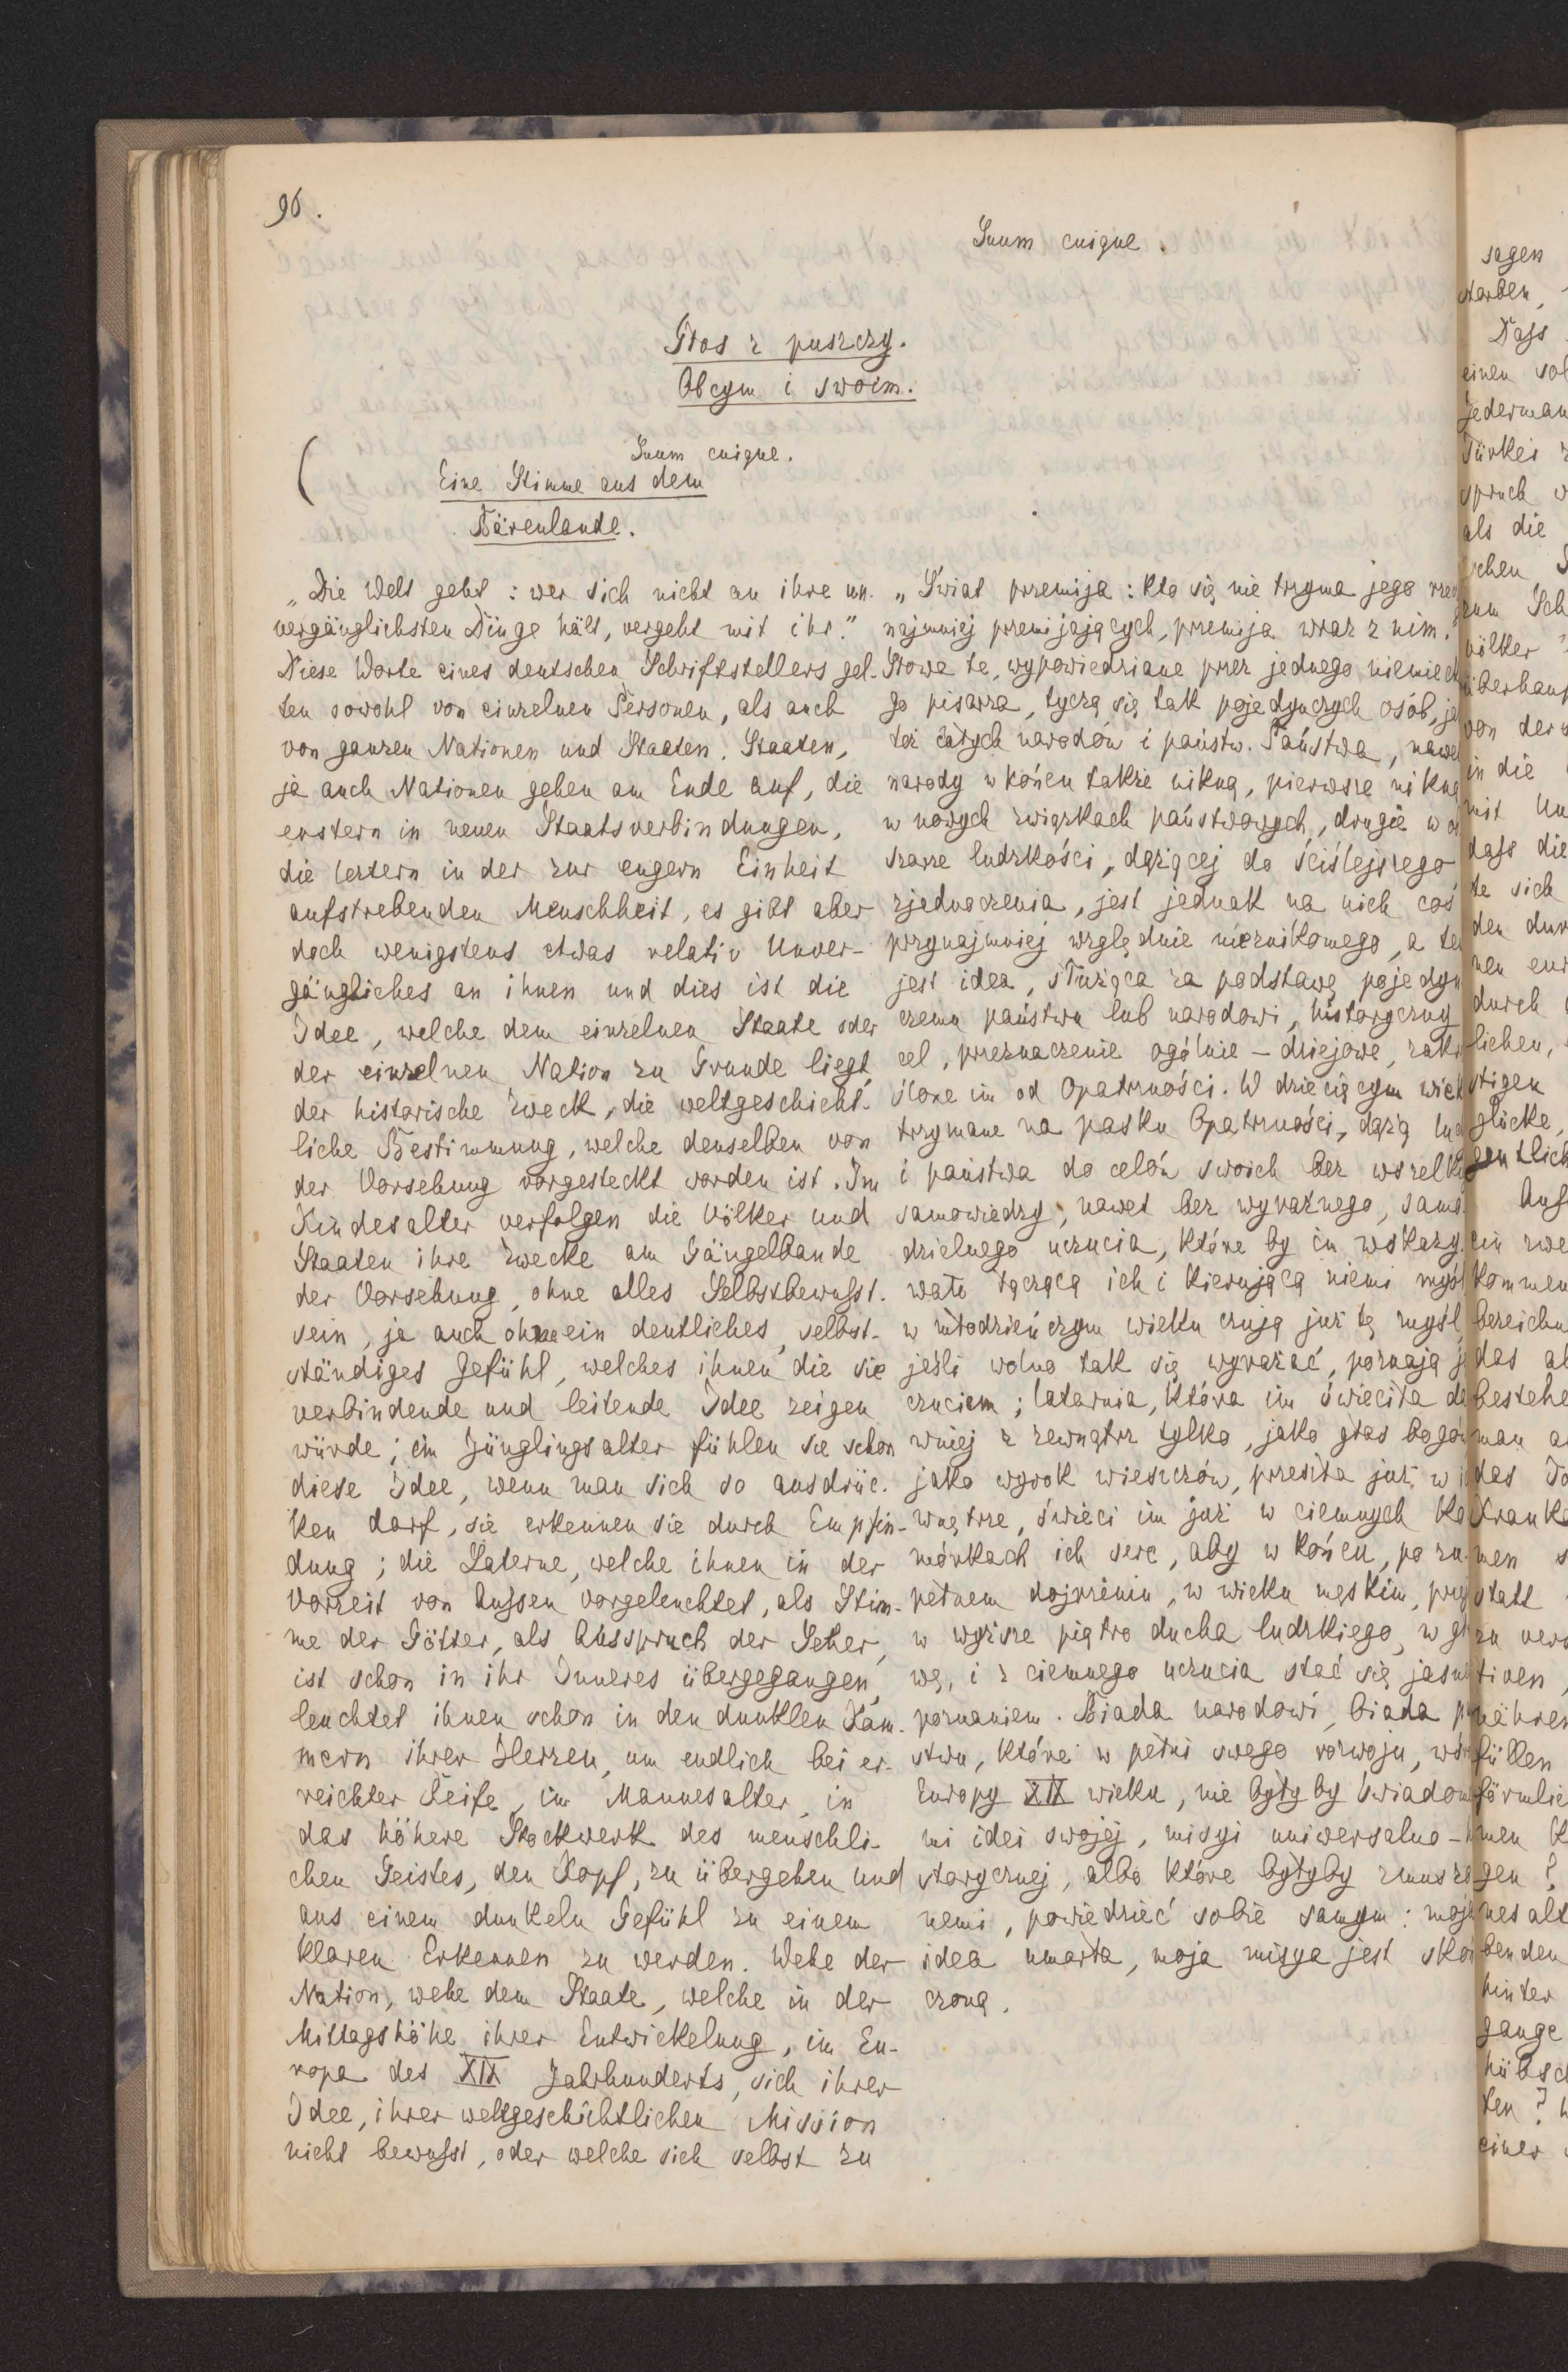 96.
Suum cuique.
Głos z puszczy.
Obcym i swoim.
(
Suum cuique.
Eine Stimme aus dem
Bärenlande.
„Die Welt geht: wer sich nicht an ihre un-
vergänglichsten Dinge hält, vergeht mit ihr."
Diese Worte eines deutschen Schriftstellers gel-
ten sowohl von einzelnen Personen, als auch
von ganzen Nationen und Staaten. Staaten,
ja auch Nationen gehen am Ende auf, die
erstern in neuen Staatsverbindungen,
die leztern in der zur engern Einheit
aufstrebenden Menschheit, es gibt aber
doch wenigstens etwas relativ Unver-
gängliches an ihnen und dies ist die
Idee, welche dem einzelnen Staate oder
der einzelnen Nation zu Grunde liegt,
der historische Zweck, die weltgeschicht-
liche Bestimmung, welche denselben von
der Vorsehung vorgesteckt worden ist. Im
Kindesalter verfolgen die Völker und
Staaten ihre Zwecke am Gängelbande
der Vorsehung, ohne alles Selbstbewußt-
sein, ja auch ohne ein deutliches, selbst-
ständiges Gefühl, welches ihnen die sie
verbindende und leitende Idee zeigen
würde; im Jünglingsalter fühlen sie schon
diese Idee, wenn man sich so ausdrüc-
ken darf, sie erkennen sie durch Empfin-
dung; die Laterne, welche ihnen in der
Vorzeit von Außen vorgeleuchtet, als Stim-
me der Götter, als Ausspruch der Seher,
ist schon in ihr Inneres übergegangen,
leuchtet ihnen schon in den dunklen Kam-
mern ihrer Herzen, um endlich bei er-
reichter Reife, im Mannesalter, in
das höhere Stockwerk des menschli-
chen Geistes, den Kopf, zu übergehen und
aus einem dunkeln Gefühl zu einem
klaren Erkennen zu werden. Wehe der
Nation, wehe dem Staate, welche in der
Mittagshöhe ihrer Entwickelung, im Eu-
ropa des XIX Jahrhunderts, sich ihrer
Idee, ihrer weltgeschichtlichen Mission
nicht bewußt, oder welche sich selbst zu
„Świat przemija: kto się nie trzyma jego rzeczy
najmniej przemijających, przemija wraz z nim."
Słowa te, wypowiedziane przez jednego niemieck
go pisarza, tyczą się tak pojedynczych osób, ja
też całych narodów i państw. Państwa, nawet
narody w końcu także nikną, pierwsze nikną
w nowych związkach państwowych, drugie w o
szarze ludzkości, dążącej do ściślejszego
zjednoczenia, jest jednak na nich coś
przynajmniej względnie nieznikomego, a te
jest idea, służąca za podstawę pojedyn
czemu państwu lub narodowi, historyczny
cel, przeznaczenie ogólnie-dziejowe, zakre
ślone im od Opatrzności. W dziecięcym wiek
trzymane na pasku Opatrzności, dążą lud
i państwa do celów swoich bez wszelki
samowiedzy, nawet bez wyraźnego, samo-
dzielnego uczucia, które by im wskazy-
wało łączącą ich i kierującą niemi myśl
w młodzieńczym wieku czują już tę myśl,
jeśli wolno tak się wyrażać, poznają ją
czuciem; latarnia, która im świeciła da
wniej z zewnątrz tylko, jako głos bogów
jako wyrok wieszczów, przeszła już w i
wnętrze, świeci im już w ciemnych ko
mórkach ich serc, aby w końcu, po zu-
pełnem dojrzeniu, w wieku męskim, przej
w wyższe piętro ducha ludzkiego, w gł
wę, i z ciemnego uczucia stać się jasn
poznaniem. Biada narodowi, biada p
stwu, które w pełni swego rozwoju, wśr
Europy XIX wieku, nie byłyby świadom
mi idei swojej, misyi uniwersalno-h
storycznej, albo które byłyby zmuszo
nemi, powiedzieć sobie samym: moja
idea umarła, moja misya jest skoń
czoną.
sagen
starben,
Dass
einen sol
Jederman
Türkei z
spruch w
als die
schen S
zum Sch
völker
überhaup
von der
in die
mit Un
dass die
te sich
den dur
nen eur
durch
lichen,
stigen
glücke,
gentlich
Auf
ein zwe
kommen
bereichn
das al
bestehe
man a
des To
Kranke
nen s
statt
zu vera
tiven,
nähren
füllen
förmlic
men K
gen?
nesalt
benden
hinter
gange
hübsch
ten? W
einer